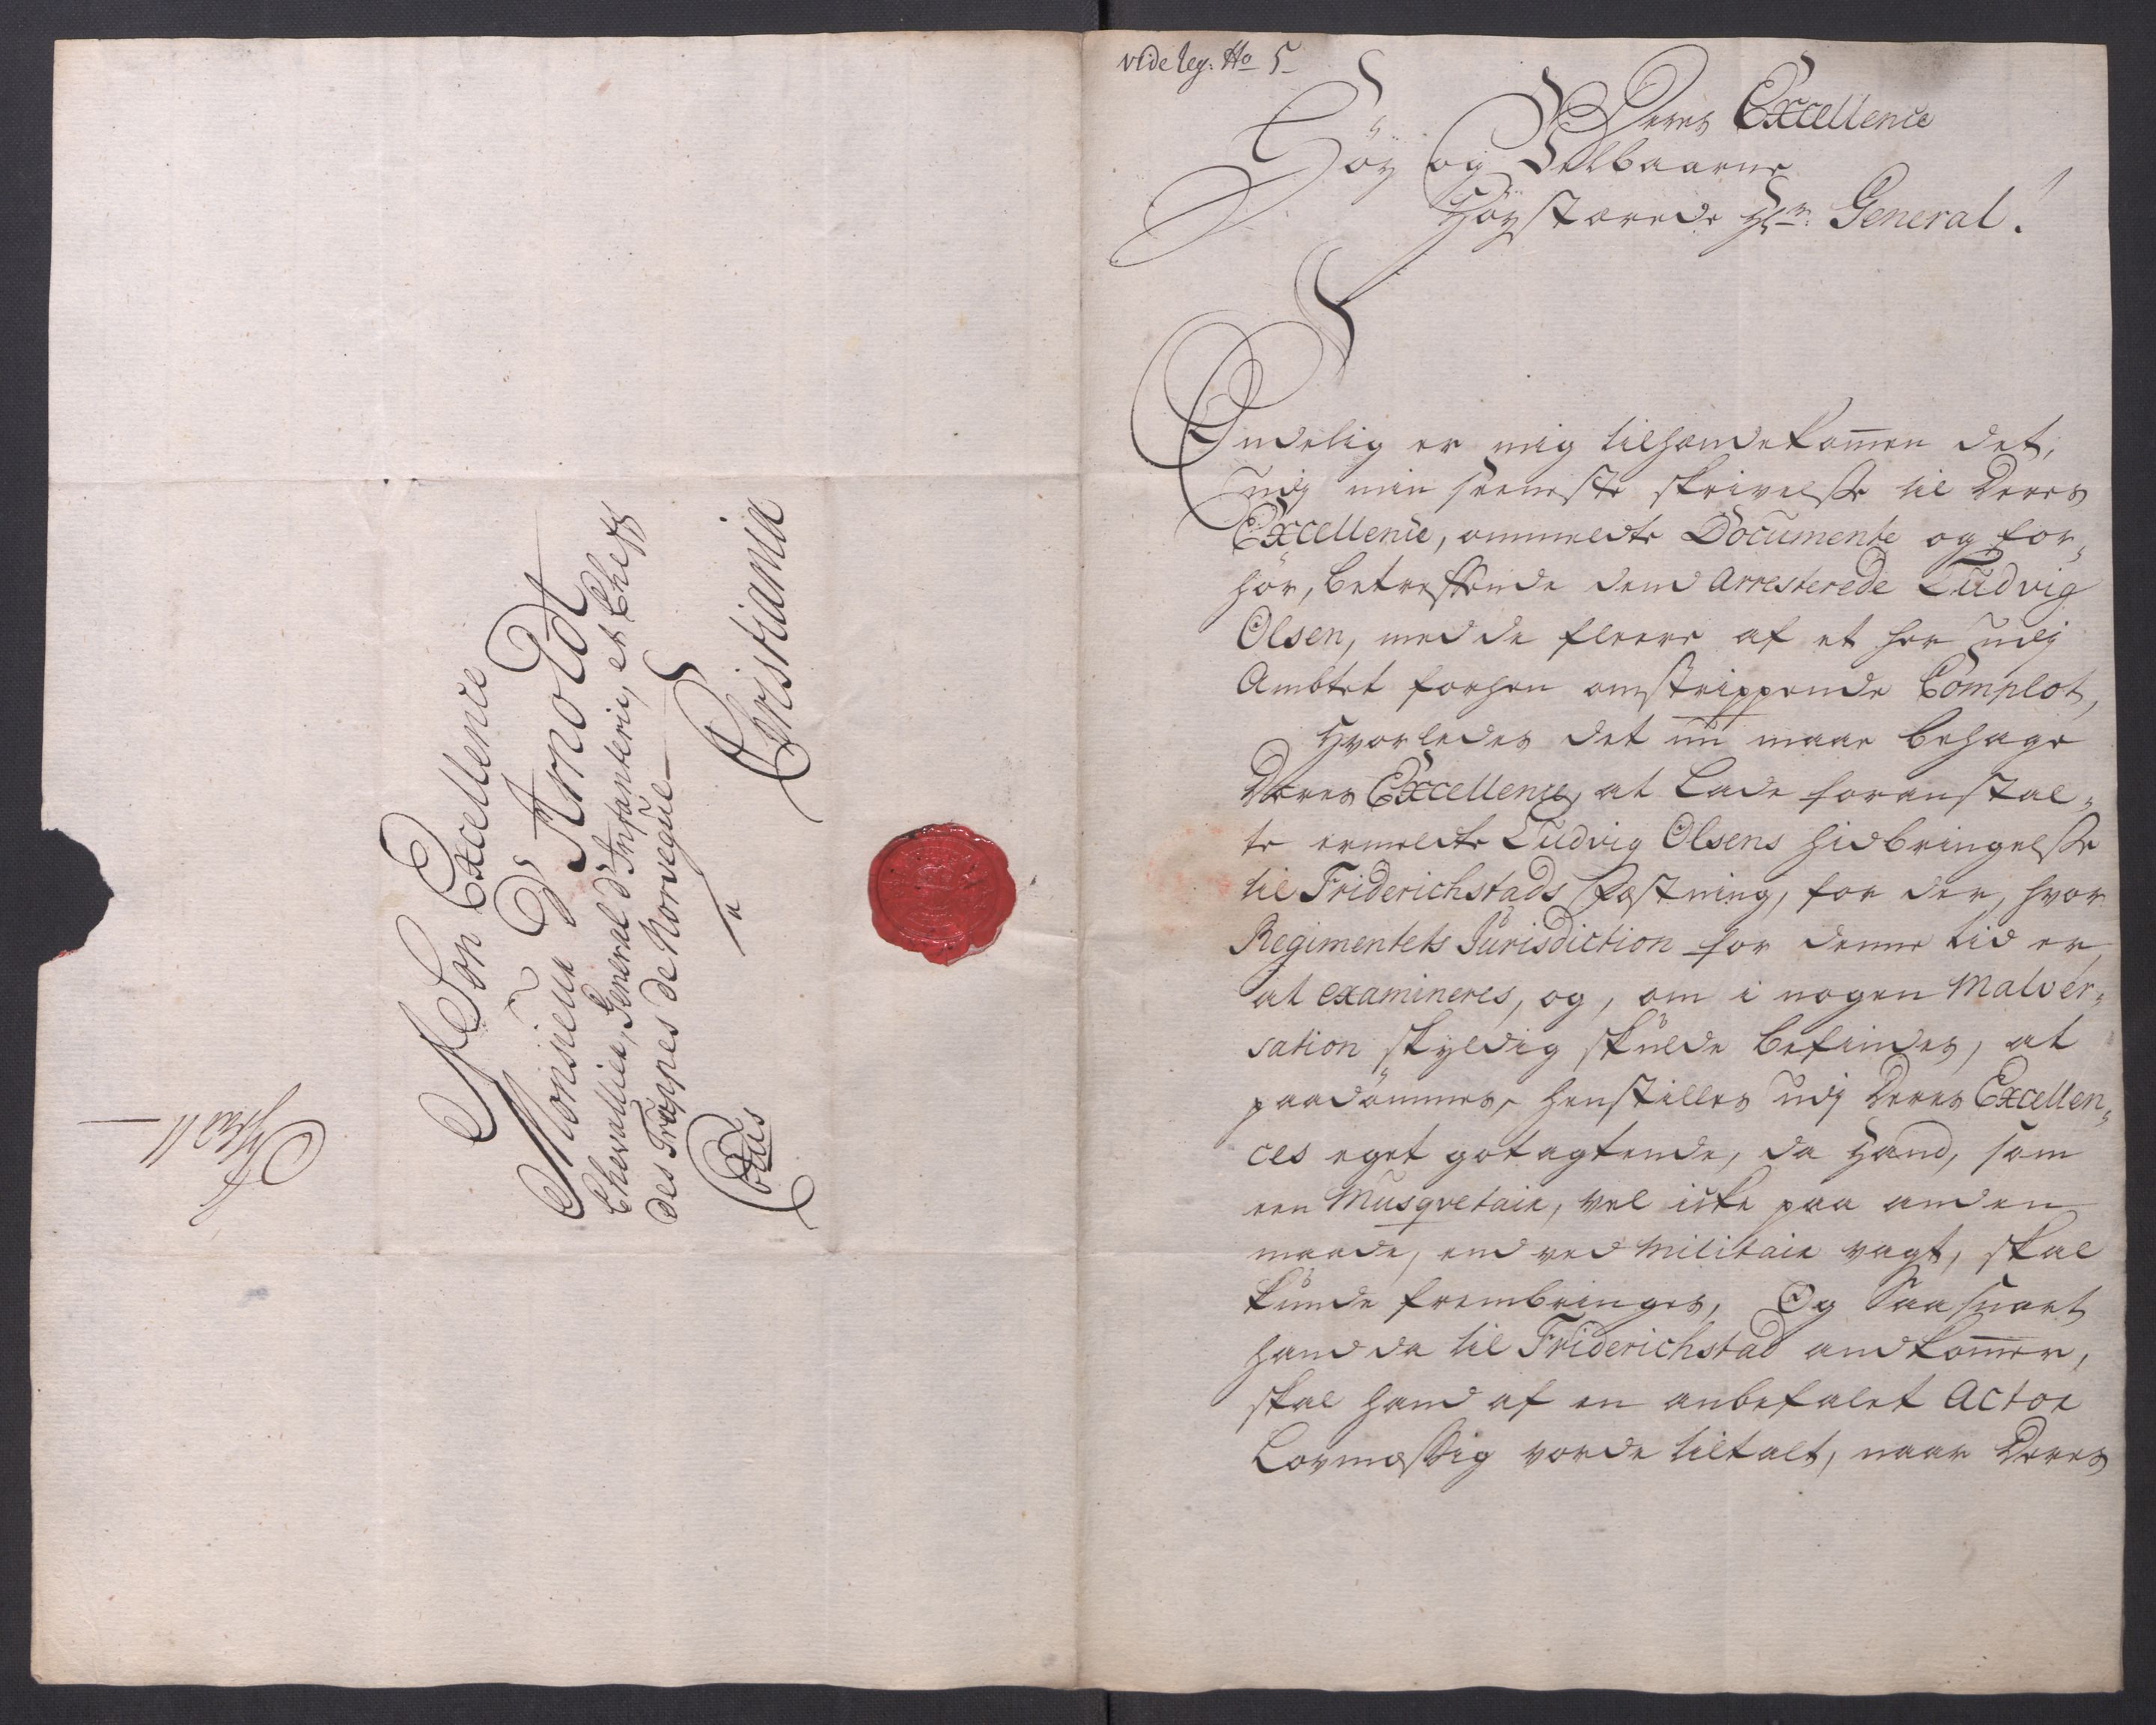 A Son Excellence
Monsieur D'Arnoldt
Chevallier, General d'Infanterie, et Cheff
des Trouppes de Norvegue
a
Cristiania
Cous
vide leg: No 5
Deres Excellence
Höy og Velbaarne
Höystærede Hr. General!
Endelig er mig tilhændekom̄en det,
udj min seeneste skrivelsse til Deres
Excellence, ommeldte Documente og for„
hör, betreffende dend Arresterede Ludvig
Olsen, med de fleere af et her udj
Ambtet forhen omstrippende Complot,
Hvorledes det nu maae behage
Deres Excellence, at lade foranstal„
te ermeldte Ludvig Olsens hidbringelsse
til Friderichstads Fæstning, for der, hvor
Regimentets Jurisdiction for denne tid er,
at examineres, og, om i nogen Malver„
sation skyldig skulde befindes, at
paadömmes, henstilles udj Deres Excellen„
ces eget gotagtende, da Hand, som
een Musqvetair, vel icke paa anden
maade, end ved Militair vagt, skal
kunde frembringes, Og Saasnart
hand da til Friderichstad andkom̄er,
skal hand af en anbefalet Actor
Lovmæssig vorde tiltalt, naar Deres